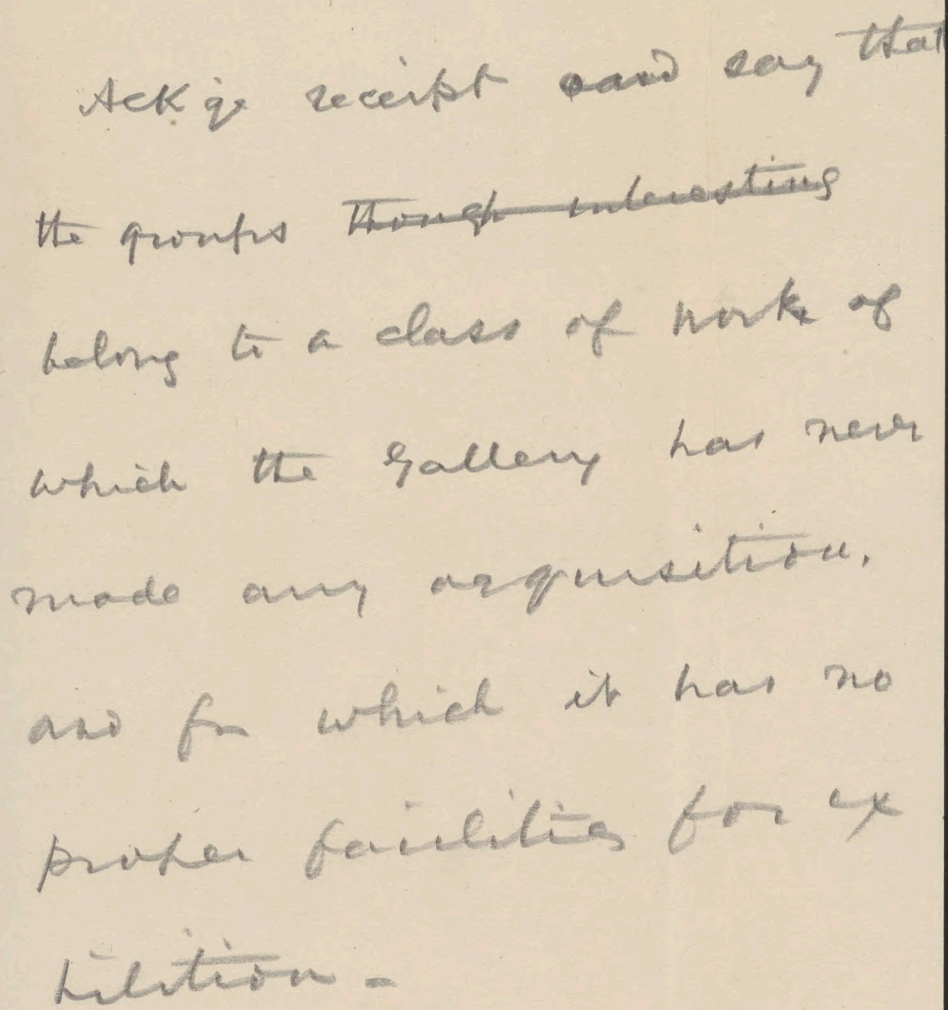 Ackge receipt and say that
the groups ~~though interesting~~
belong to a class of work of
which the Gallery has never
made any acquisition,
and for which it has no
proper facilities for ex
hibition –